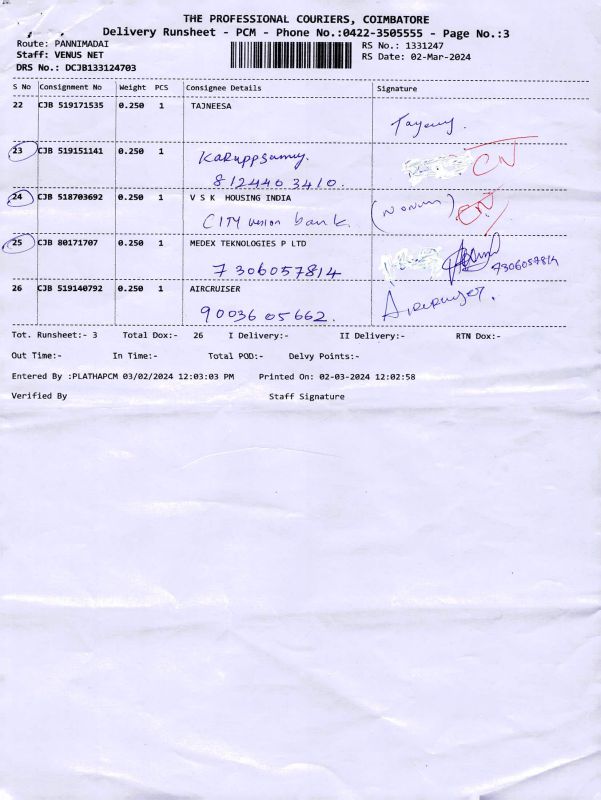 THE PROFESSIONAL COURIERS, COIMBATORE
Delivery Runsheet - PCM - Phone No.:0422-3505555 - Page No.:3
Route: PANNIMADAI
RS No.: 1331247
Staff: VENUS NET
RS Date: 02-Mar-2024
DRS No.: DCJB133124703
S No Consignment No Weight PCS Consignee Details Signature
22 CJB 519171535 0.250 1 TAJNEESA
23 CJB 519151141 0.250 1
Karuppsamy. CN
8124403410.
24 CJB 518703692 0.250 1 V S K HOUSING INDIA
CITY union bank CN
25 CJB 80171707 0.250 1 MEDEX TEKNOLOGIES P LTD
7306057814 7306057814
26 CJB 519140792 0.250 1 AIRCRUISER
9003605662.
Tot. Runsheet:- 3 Total Dox:- 26 I Delivery:- II Delivery:- RTN Dox:-
Out Time:- In Time:- Total POD:- Delvy Points:-
Entered By :PLATHAPCM 03/02/2024 12:03:03 PM Printed On: 02-03-2024 12:02:58
Verified By Staff Signature